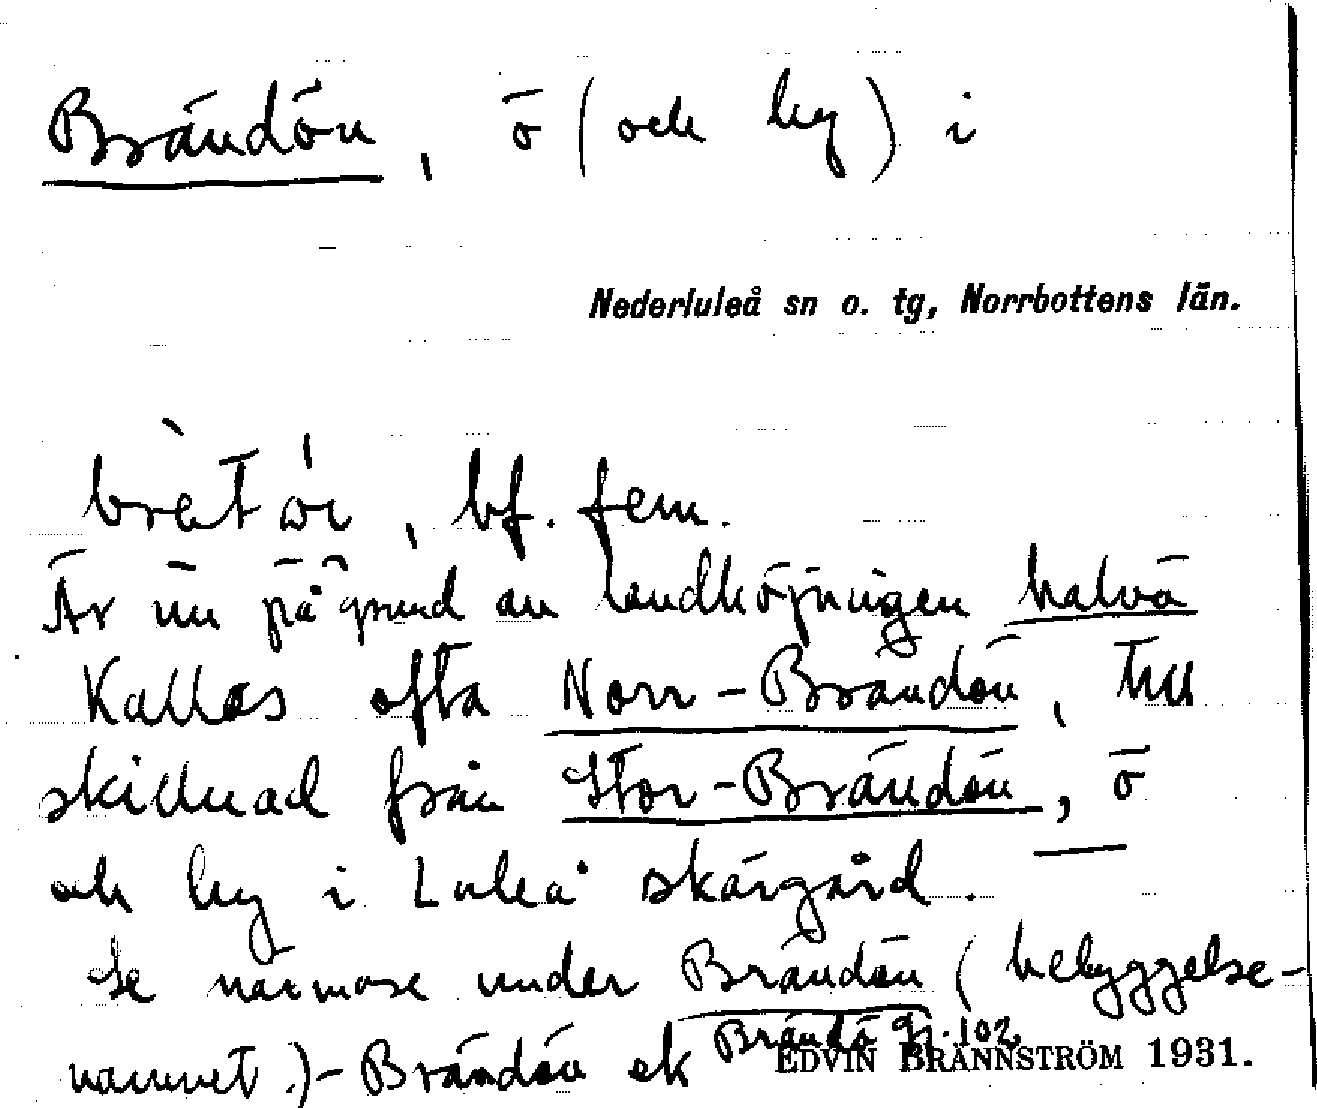 Brändön, ö (och by) i
Nederluleå sn o. tg, Norrbottens län.
bf. fem.
Är nu på grund av landhöjningen halvö
Kallas ofta Norr-Brändön, till
skillnad från Stor-Brändön, ö
och by i Luleå skärgård.
Se närmare under Brändön (bebyggelse-
namnet.)- Brändön ek Brändö gj. 102
EDVIN BRÄNNSTRÖM 1931.